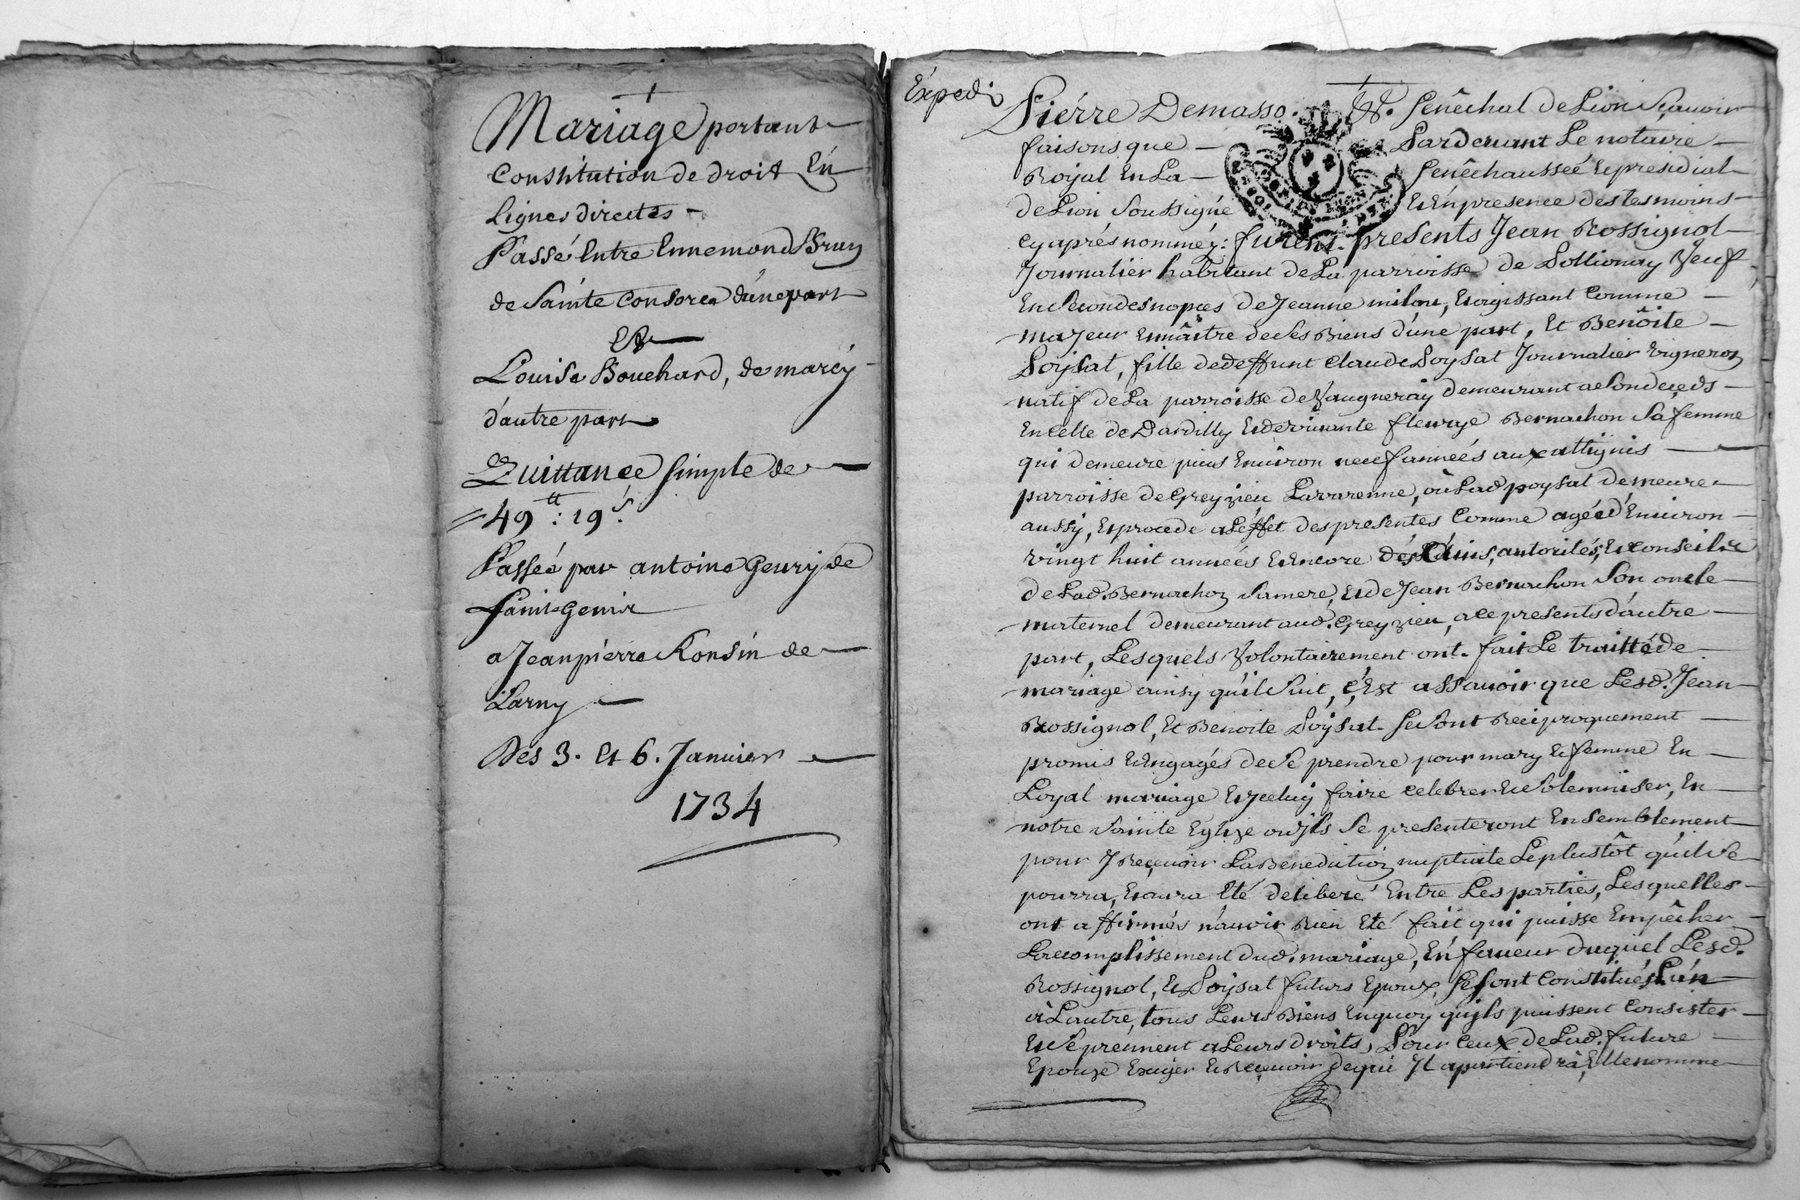 Mariage portant
Constitution de droit En
Lignes directes
Passé Entre Ennemond Brun
de Sainte Consorce d'une part
Et
Louise Bouchard, de marcy
d'autre part
Quittance simple de
49 ᵗᵗ : 19 ˢ.
Passée par antoine Geury de
Saint Genis
a Jean pierre Ronsin de
Larny
Des 3. Et 6. Janvier
1734
Expedié
Pierre Demasso. &. Senêchal de Lion Sçavoir
faisons que Pardevant Le notaire
Royal En La Senêchausseé Et presidial
de Lion Soussigné Et En presence des tesmoins
cy aprés nommez : furent presents Jean Rossignol
Journalier habitant de La parroisse de Pollionay Veuf
En Secondes nopces de Jeanne milon, Et agissant Comme
majeur Et maître de Ses Biens d'une part, Et Benôite
Poysat, fille de deffunt Claude Poysat Journalier Vigneron
natif de La parroisse de Vaugneray demeurant a Son deceds
En celle de Dardilly Et de vivante fleurye Bernachon Sa femme
qui demeure puis Environ neuf années aux attignis
parroisse de Greyzieu Lavarenne, où Lad. poysat demeure
aussy, Et procede a L'éffet des presentes Comme agéé d'Environ
vingt huit années Et Encore dés L'avis, autorités, Et conseil
de Lad. Bernachon Sa mere, Et de Jean Bernachon Son oncle
maternel demeurant aud. Greyzieu, a ce presents d'autre
part, Lesquels Volontairement ont fait Le traitté de
mariage ainsy qu'il Suit, C'Est assavoir que Lesd. Jean
Rossignol, Et Benoite Poysat Se Sont Reciproquement
promis Et Engagés de Se prendre pour mary Et femme En
Loyal mariage Et Jceluy faire celebrer Et Solemniser, En
notre Sainte Eglize ou Jls Se presenteront Ensemblement
pour J Reçevoir La Benediction nuptiale Le plustôt qu'il Se
pourra, Et aura Eté deliberé Entre Les parties, Lesquelles
ont affirmés n'avoir Rien Eté fait qui puisse Empêcher
L'accomplissement dud. mariage, En faveur duquel Lesd.
Rossignol, Et Poysat futurs Epoux, Se Sont Constitués L'un
à L'autre, tous Leurs Biens En quoy qu'jls puissent Consister
Et Se prennent a Leurs droits, Pour Ceux de Lad. future
Epouze Exiger Et Reçevoir de qui Jl apartiendrà, Elle nomme